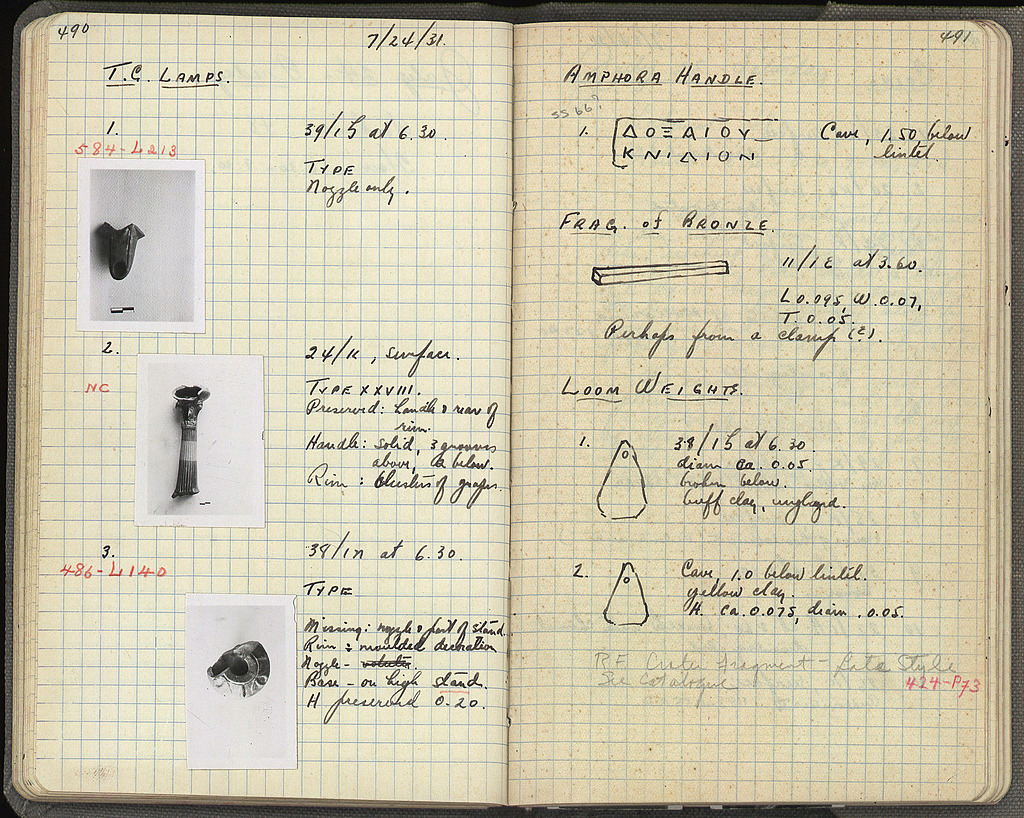 490
7/24/31.
T.C. LAMPS.
1.
584-L213
39/1Ϛ at 6.30.
TYPE
Nozzle only.
2.
NC
24/ΙΕ, surface.
TYPE XXVIII.
Preserved: handle & rear of
rim.
Handle: solid, 3 grooves
above, 2 below.
Rim: Clusters of grapes.
3.
486-L140
38/ΙΗ at 6.30.
TYPE
Missing: nozzle & part of stand.
Rim: moulded decoration
Nozzle - volutes.
Base - on high stand.
H preserved 0.20.
491
AMPHORA HANDLE.
SS 667
1. ΔΟΞΑΙΟΥ
ΚΝΙΔΙΟΝ
Cave, 1.50 below
lintel.
FRAG. of BRONZE.
11/ΙΕ at 3.60.
L 0.095, W. 0.07,
T. 0.05.
Perhaps from a clamp (?).
LOOM WEIGHTS.
1.
38/1Ϛ at 6.30
diam ca. 0.05.
broken below.
buff clay, unglazed.
2.
Cave, 1.0 below lintel.
yellow clay.
H. ca. 0.075, diam. 0.05.
R.F. Crater fragment - Late Style
See Catalogue
424-P73